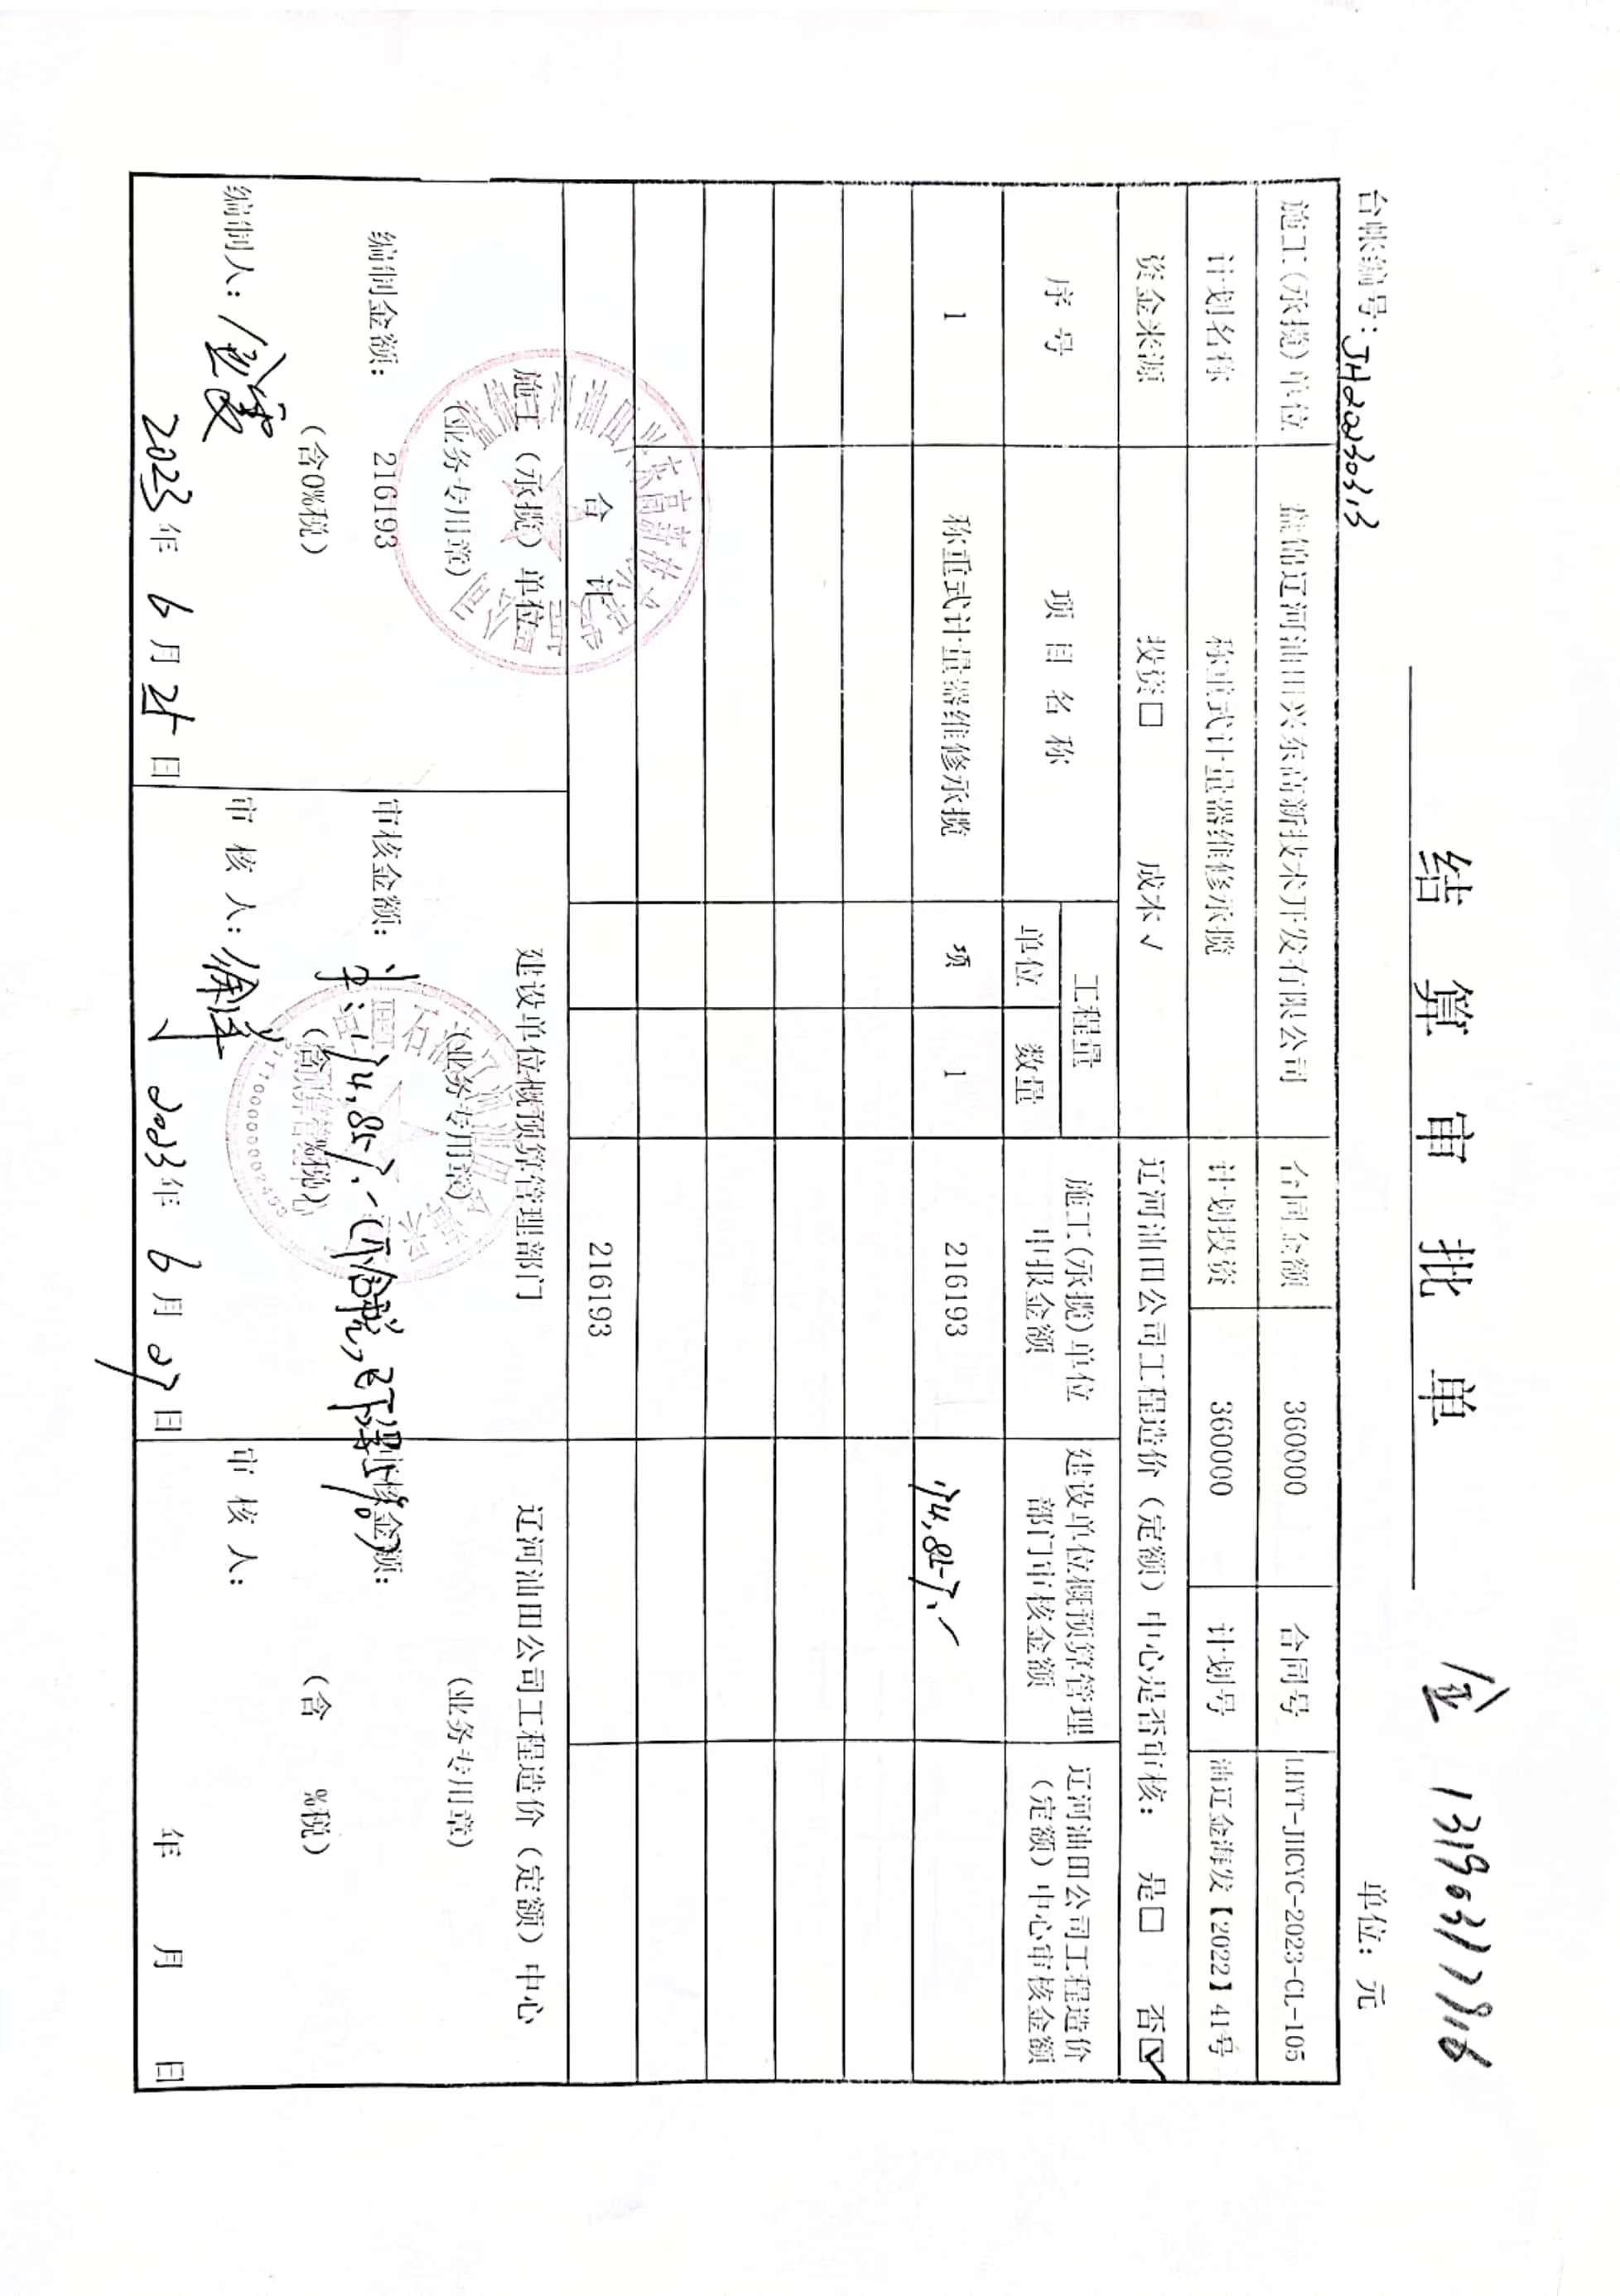 结算审批单
金 13190317916
台帐编号：JH20230313
单位：元
施工(承揽)单位 盘锦辽河油田兴东高新技术开发有限公司 合同金额 360000 合同号 LHYT-JHCYC-2023-CL-105
计划名称 称重式计量器维修承揽 计划投资 360000 计划号 油辽金海发【2022】41号
资金来源 投资□ 成本√ 辽河油田公司工程造价（定额）中心是否审核： 是□ 否☑
序号 项目名称 工程量 施工(承揽)单位 建设单位概预算管理 辽河油田公司工程造价
单位 数量 申报金额 部门审核金额 （定额）中心审核金额
1 称重式计量器维修承揽 项 1 216193
合计 216193
施工（承揽）单位 建设单位概预算管理部门 辽河油田公司工程造价（定额）中心
（业务专用章） （业务专用章） （业务专用章）
编制金额： 216193 审核金额： 审核金额：
（含0%税） （含 %税）
编制人： 审核人： 审核人：
2023年6月25日 2023年6月27日 年 月 日